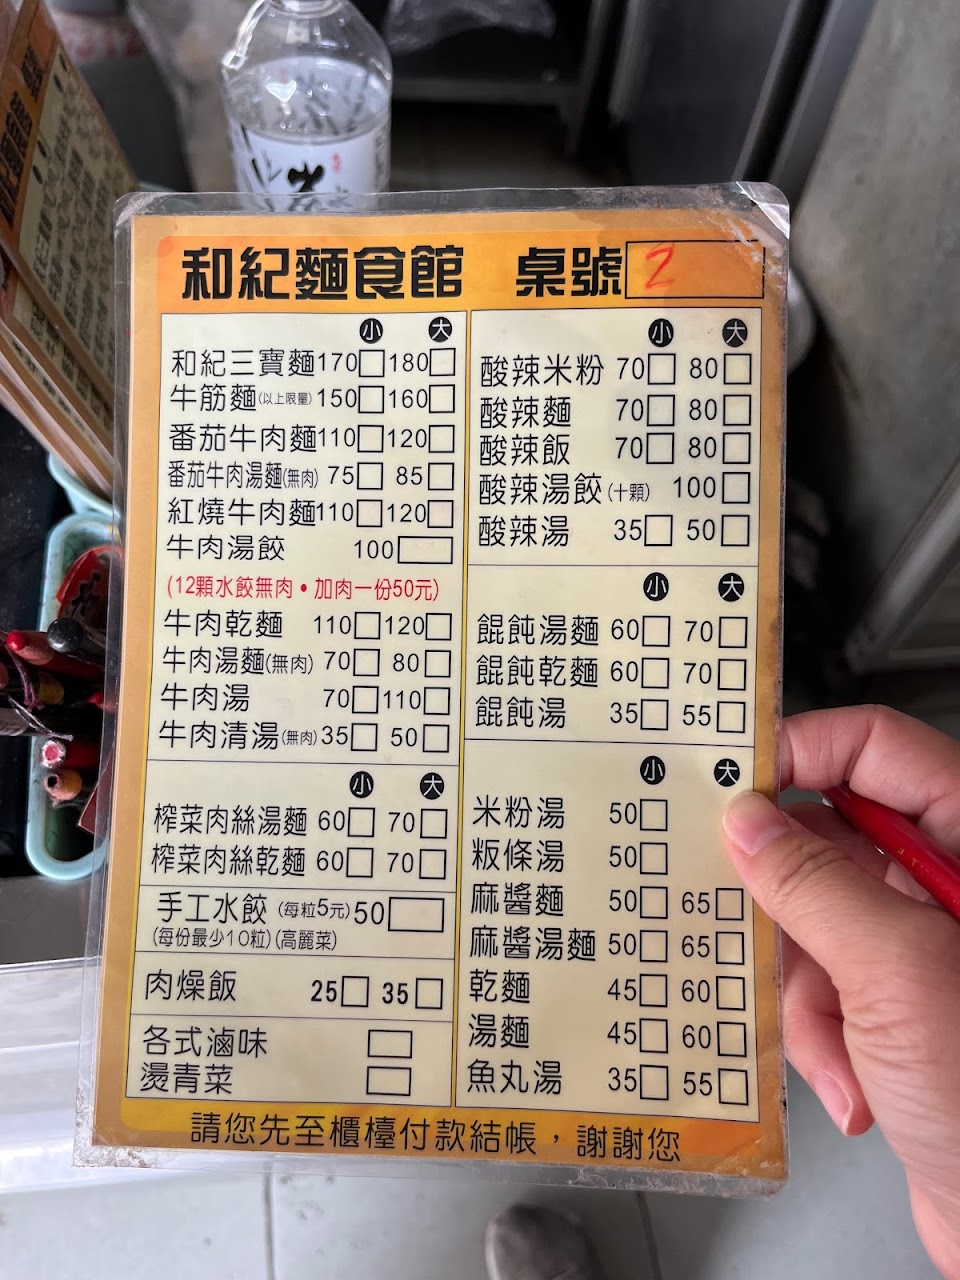 和紀麵食館 桌號 2
小 大
和紀三寶麵 170 180
牛筋麵(以上限量) 150 160
番茄牛肉麵 110 120
番茄牛肉湯麵(無肉) 75 85
紅燒牛肉麵 110 120
牛肉湯餃 100
(12顆水餃無肉•加肉一份50元)
牛肉乾麵 110 120
牛肉湯麵(無肉) 70 80
牛肉湯 70 110
牛肉清湯(無肉) 35 50
小 大
榨菜肉絲湯麵 60 70
榨菜肉絲乾麵 60 70
手工水餃(每粒5元) 50
(每份最少10粒)(高麗菜)
肉燥飯 25 35
各式滷味
燙青菜
小 大
酸辣米粉 70 80
酸辣麵 70 80
酸辣飯 70 80
酸辣湯餃(十顆) 100
酸辣湯 35 50
小 大
餛飩湯麵 60 70
餛飩乾麵 60 70
餛飩湯 35 55
小 大
米粉湯 50
粄條湯 50
麻醬麵 50 65
麻醬湯麵 50 65
乾麵 45 60
湯麵 45 60
魚丸湯 35 55
請您先至櫃檯付款結帳，謝謝您